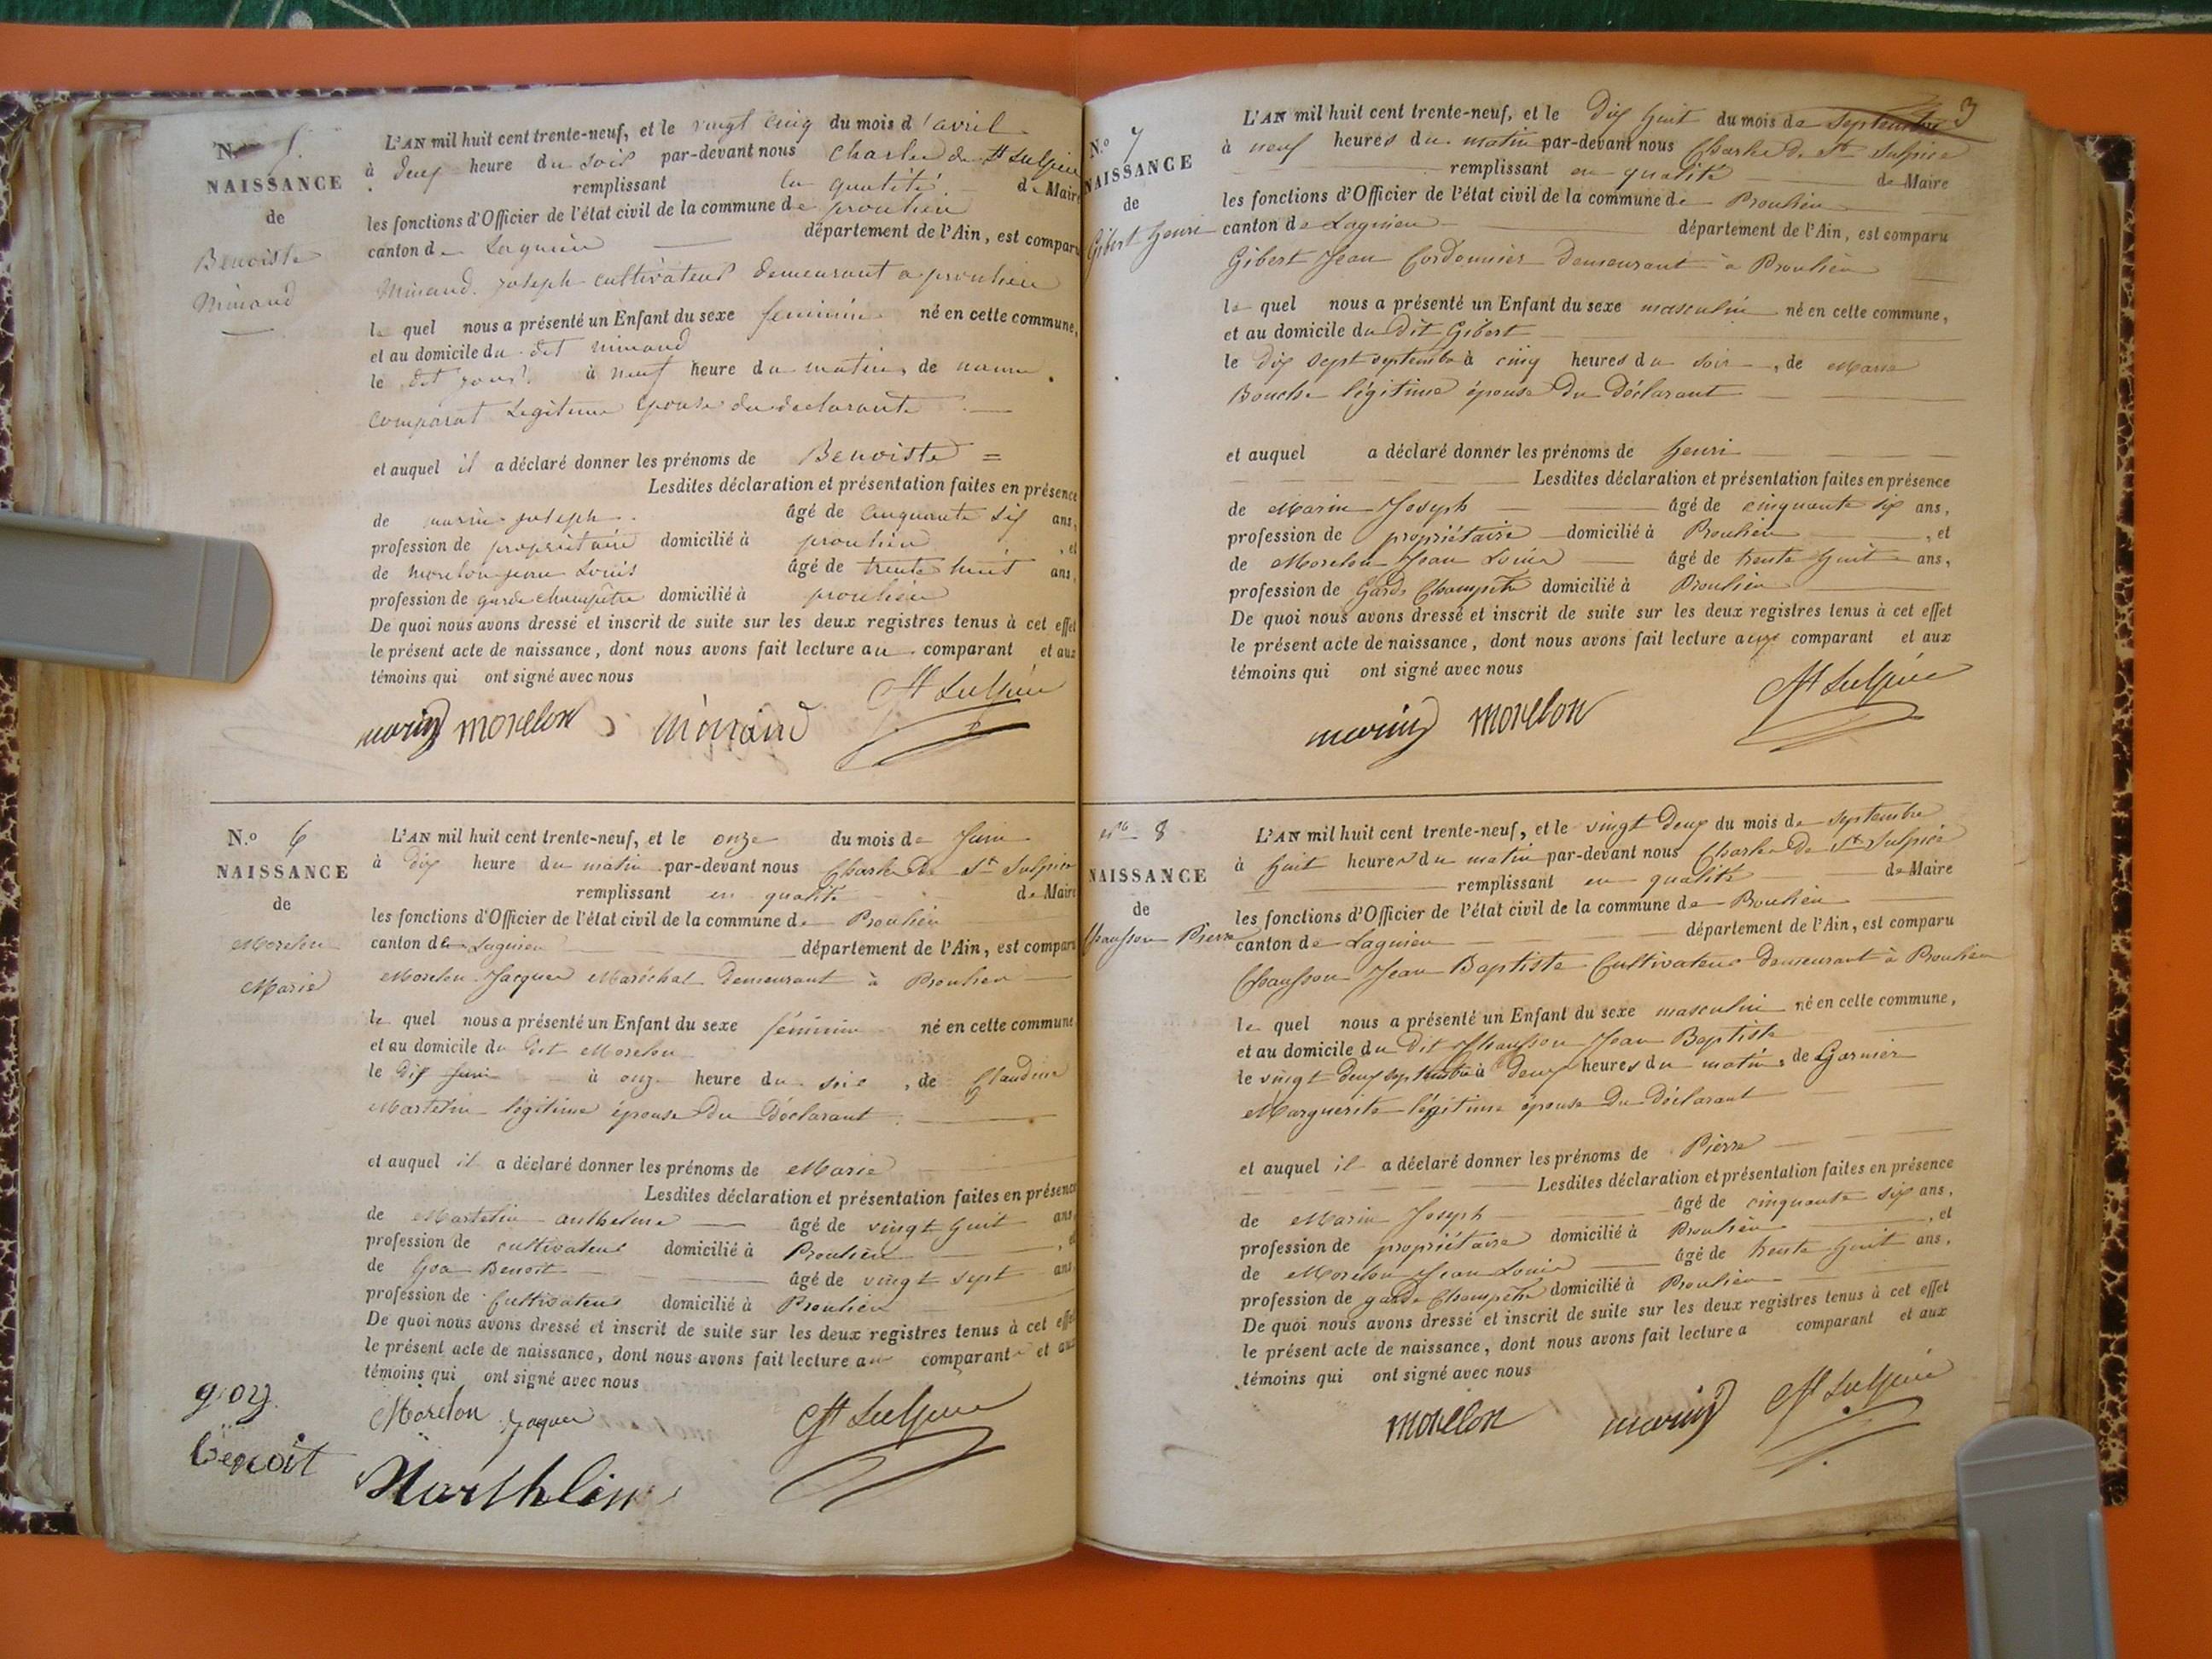 N.o 5.
NAISSANCE
de
Benoiste
Minand
L'AN mil huit cent trente-neuf, et le vingt cinq du mois d'avril
à deux heure du soir par-devant nous Charles de St Sulpice
remplissant la qualité de Maire
les fonctions d'Officier de l'état civil de la commune de proulieu
canton de Lagnieu département de l'Ain, est comparu
Minand joseph cultivateur demeurant a proulieu
le quel nous a présenté un Enfant du sexe feminin né en cette commune,
et au domicile du dit minand
le dit jour à neuf heure du matin, de
comparat Legitime epouse du declarante
et auquel il a déclaré donner les prénoms de Benoiste =
Lesdites déclaration et présentation faites en présence
de marin joseph âgé de cinquante six ans,
profession de propriétaire domicilié à proulieu, et
de morelon jean Louis âgé de trente huit ans,
profession de garde champêtre domicilié à proulieu
De quoi nous avons dressé et inscrit de suite sur les deux registres tenus à cet effet
le présent acte de naissance, dont nous avons fait lecture au comparant et aux
témoins qui ont signé avec nous
St Sulpice
marin morelon minand
N.o 6
NAISSANCE
de
Morelon
Marie
L'AN mil huit cent trente-neuf, et le onze du mois de Juin
à dix heure du matin par-devant nous Charles De St Sulpice
remplissant en qualité de Maire
les fonctions d'Officier de l'état civil de la commune de Proulieu
canton de Lagnieu département de l'Ain, est comparu
Morelon Jacques Maréchal demeurant à Proulieu
le quel nous a présenté un Enfant du sexe féminin né en cette commune
et au domicile du dit Morelon
le dix juin à onze heure du soir, de Claudine
Martelin légitime épouse du Déclarant
et auquel il a déclaré donner les prénoms de Marie
Lesdites déclaration et présentation faites en présence
de Martelin anthelme âgé de vingt huit ans
profession de cultivateur domicilié à Proulieu, et
de Goa Benoit âgé de vingt sept ans
profession de Cultivateur domicilié à Proulieu
De quoi nous avons dressé et inscrit de suite sur les deux registres tenus à cet effet
le présent acte de naissance, dont nous avons fait lecture au comparant et aux
témoins qui ont signé avec nous
goy
Benoit
Morelon Jaque St Sulpice
Marthlin
3
N.o 7
NAISSANCE
de
Gibert henri
L'AN mil huit cent trente-neuf, et le Dix huit du mois de Septembre
à neuf heures du matin par-devant nous Charles De St Sulpice
remplissant en qualité de Maire
les fonctions d'Officier de l'état civil de la commune de Proulieu
canton de Lagnieu département de l'Ain, est comparu
Gibert Jean Cordonnier Demeurant à Proulieu
le quel nous a présenté un Enfant du sexe masculin né en cette commune,
et au domicile du Dit Gibert
le dix sept septembre à cinq heures du soir, de Marie
Bouche légitime épouse Du Déclarant
et auquel a déclaré donner les prénoms de henri
Lesdites déclaration et présentation faites en présence
de Marin Joseph âgé de cinquante six ans,
profession de propriétaire domicilié à Proulieu, et
de Morelon Jean Louis âgé de trente huit ans,
profession de Garde Champêtre domicilié à Proulieu
De quoi nous avons dressé et inscrit de suite sur les deux registres tenus à cet effet
le présent acte de naissance, dont nous avons fait lecture aux comparant et aux
témoins qui ont signé avec nous
St Sulpice
marin morelon
No 8
NAISSANCE
de
Chausson Pierre
L'AN mil huit cent trente-neuf, et le vingt Deux du mois de Septembre
à huit heures du matin par-devant nous Charles De St Sulpice
remplissant en qualité de Maire
les fonctions d'Officier de l'état civil de la commune de Proulieu
canton de Lagnieu département de l'Ain, est comparu
Chausson Jean Baptiste Cultivateur demeurant à Proulieu
le quel nous a présenté un Enfant du sexe masculin né en cette commune,
et au domicile du Dit Chausson Jean Baptiste
le vingt deux septembre à deux heures du matin, de Garnier
Marguerite légitime épouse Du Déclarant
et auquel il a déclaré donner les prénoms de Pierre
Lesdites déclaration et présentation faites en présence
de Marin Joseph âgé de cinquante six ans,
profession de propriétaire domicilié à Proulieu, et
de Morelon Jean Louis âgé de trente huit ans,
profession de garde Champêtre domicilié à Proulieu
De quoi nous avons dressé et inscrit de suite sur les deux registres tenus à cet effet
le présent acte de naissance, dont nous avons fait lecture a comparant et aux
témoins qui ont signé avec nous
morelon marin St Sulpice